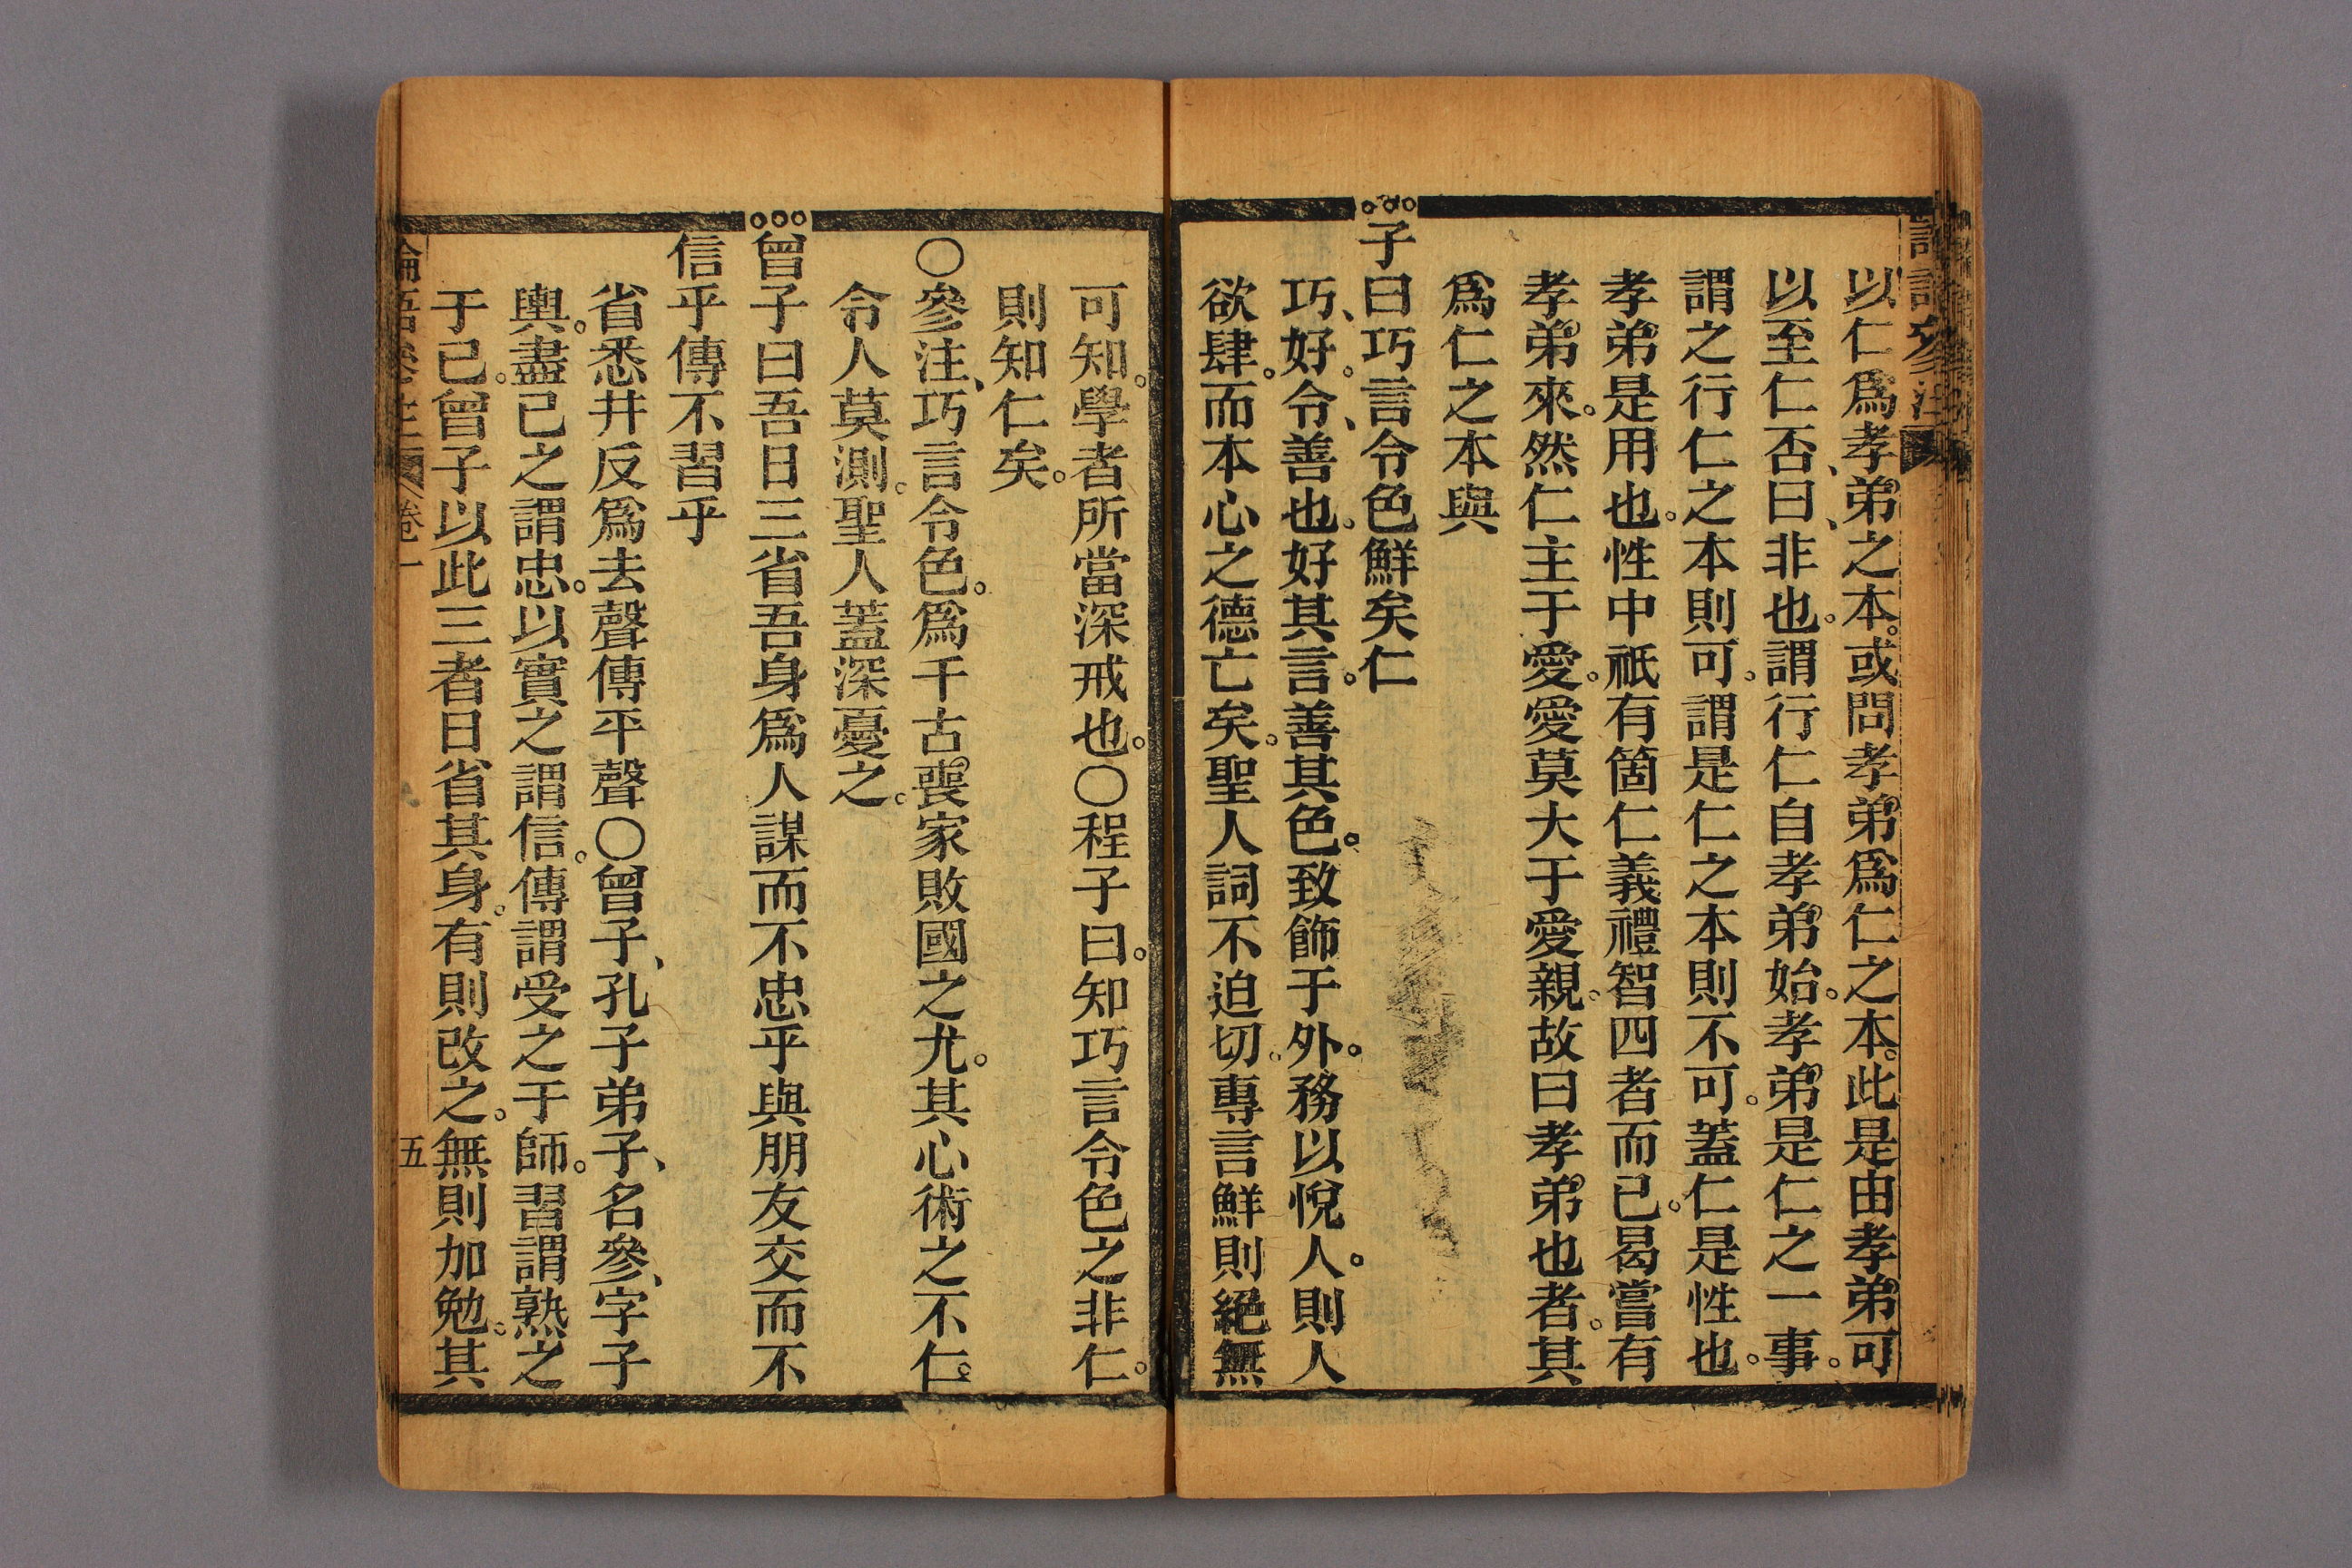 以仁爲孝弟之本。或問孝弟爲仁之本。此是由孝弟可
以至仁否、曰、非也。謂行仁自孝弟始。孝弟是仁之一事。
謂之行仁之本則可。謂是仁之本則不可。蓋仁是性也。
孝弟是用也。性中祇有箇仁義禮智四者而已。曷嘗有
孝弟來。然仁主于愛。愛莫大于愛親。故曰孝弟也者。其
爲仁之本與
子曰巧言令色鮮矣仁
巧、好。令、善也。好其言。善其色。致飾于外。務以悅人。則人
欲肆。而本心之德亡矣。聖人詞不迫切。專言鮮則絕無
可知。學者所當深戒也。〇程子曰。知巧言令色之非仁。
則知仁矣。
〇參注、巧言令色。爲千古喪家敗國之尤。其心術之不仁。
令人莫測。聖人蓋深憂之。
曾子曰吾日三省吾身爲人謀而不忠乎與朋友交而不
信乎傳不習乎
省悉井反爲去聲傳平聲〇曾子、孔子弟子、名參、字子
輿。盡己之謂忠。以實之謂信。傳謂受之于師。習謂熟之
于己。曾子以此三者日省其身。有則改之。無則加勉。其
卷一
五